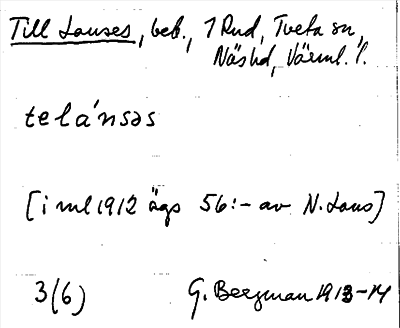 Till Lanses, beb., 1 Rud, Tveta sn,
Näshd, Värml. l.
telánsəs
[i ml 1912 ägs 56:- av N. Lans]
3(6) G. Bergman 1913-14